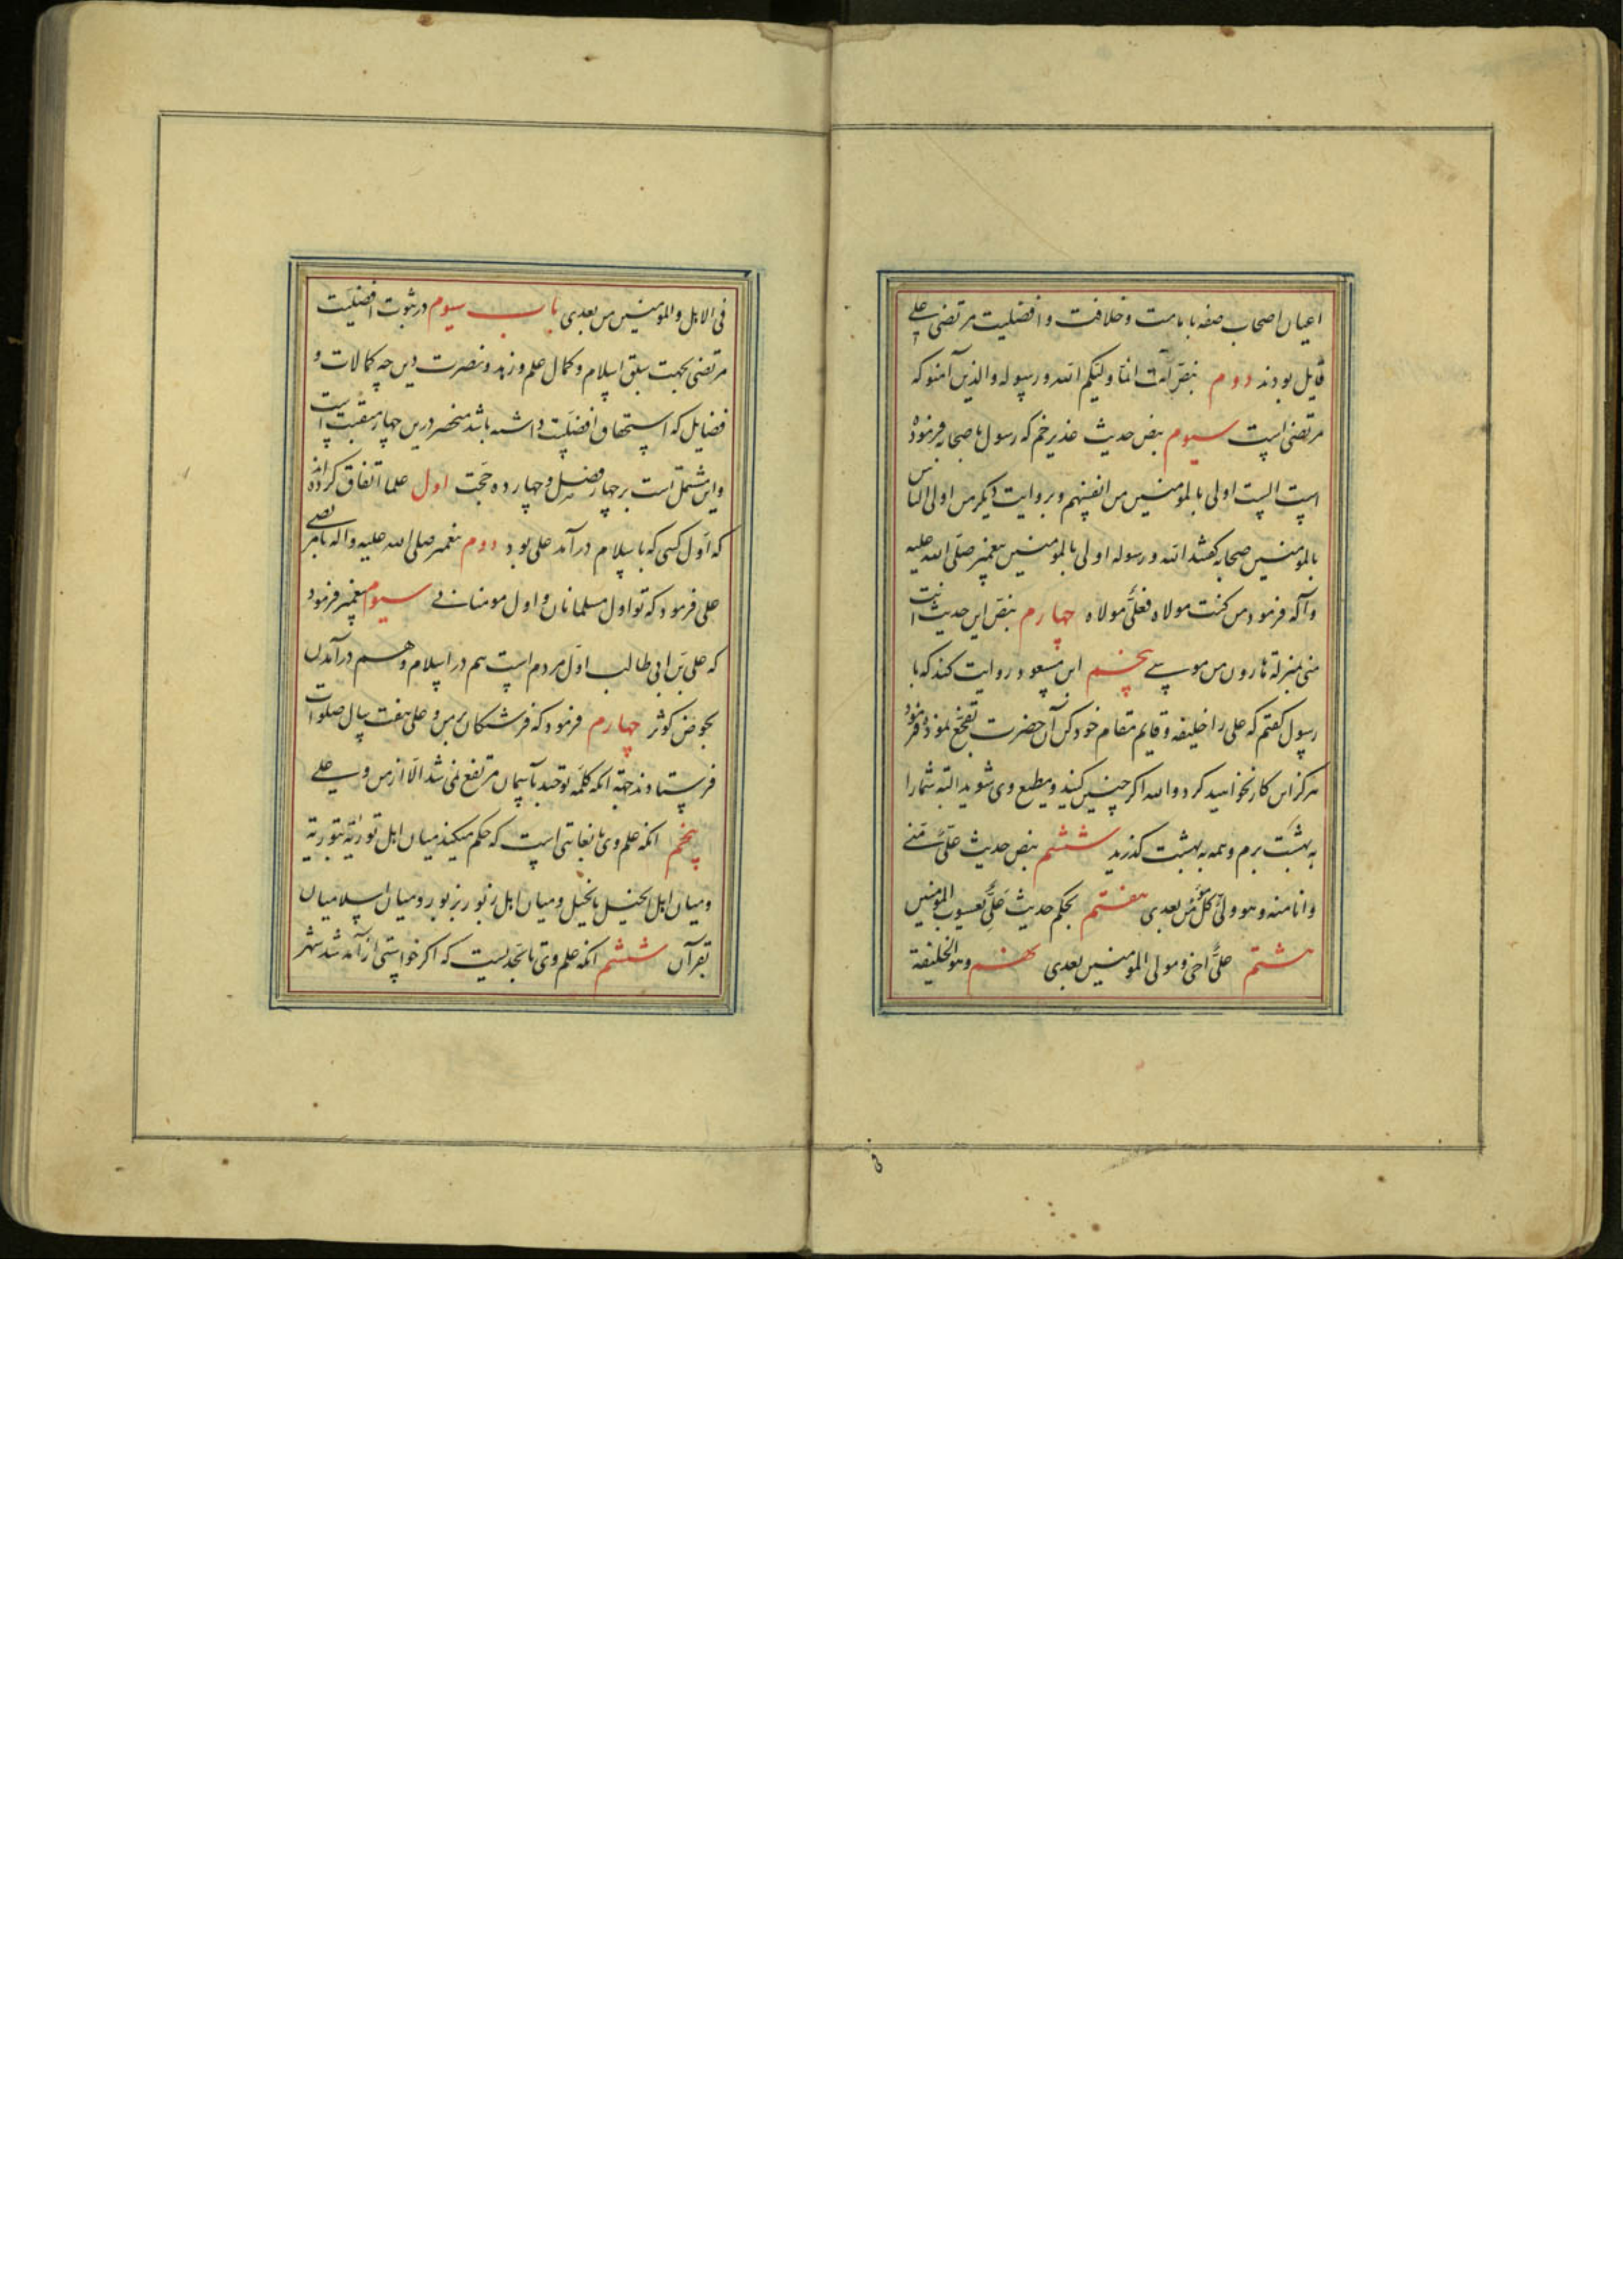 اعیان اصحاب صفه بامامت و خلافت و افضلیت مرتضی علی
قایل بودند دوم بنص آیت انما ولیکم الله و رسوله والذین آمنو که
مرتضی است سیوم بنص حدیث غدیر خم که رسول باصحابه فرموده
است الست اولی بالمؤمنین من انفسهم و بروایت دیگر من اولی الناس
بالمومنین صحابه گفتند الله و رسوله اولی بالمومنین پیغمبر صلی الله علیه
وآله فرمود من کنت مولاه فعلی مولاه چهارم بنص این حدیث انت
منی بمنزلة هارون من موسی پنجم ابن مسعود روایت کند که با
رسول گفتم که علی را خلیفه و قایم مقام خود کن آن حضرت نموده فرمود
هرگز این کار نخواهید کرد والله اگر چنین کنید و مطیع وی شوید البته شما را
به بهشت برم و همه به بهشت گذرید ششم بنص حدیث علی منی
وانا منه وهو ولی کل مؤمن بعدی هفتم بحکم حدیث علی یعسوب المومنین
هشتم علی اخی و مولی المومنین بعدی نهم وهو الخلیفة
فی الاهل والمومنین من بعدی باب سیوم در ثبوت افضلیت
مرتضی بجهت سبق اسلام و کمال علم و زهد و نصرت دین چه کمالات و
فضایل که استحقاق افضلیت داشته باشد منحصر درین چهار منقبت است
و این مشتمل است بر چهار فصل و چهارده حجت اول علما اتفاق کرده‌اند
که اول کسی که باسلام درآمد علی بود دوم پیغمبر صلی الله علیه وآله با مرتضی
علی فرمود که تو اول مسلمانان و اول مومنانی سیوم پیغمبر فرمود
که علی بن ابی طالب اول مردم است هم در اسلام و هم در آمدن
بحوض کوثر چهارم فرمود که فرشتگان بر من و علی هفت سال صلوات
فرستادند جهة آنکه کلمه توحید بآسمان مرتفع نمی شد الا از من و علی
پنجم آنکه علم وی بغایتی است که حکم میکند میان اهل توریة بتوریة
و میان اهل انجیل بانجیل و میان اهل زبور بزبور و میان اسلامیان
بقرآن ششم آنکه علم وی تا بحدیست که اگر خواستی از شتر